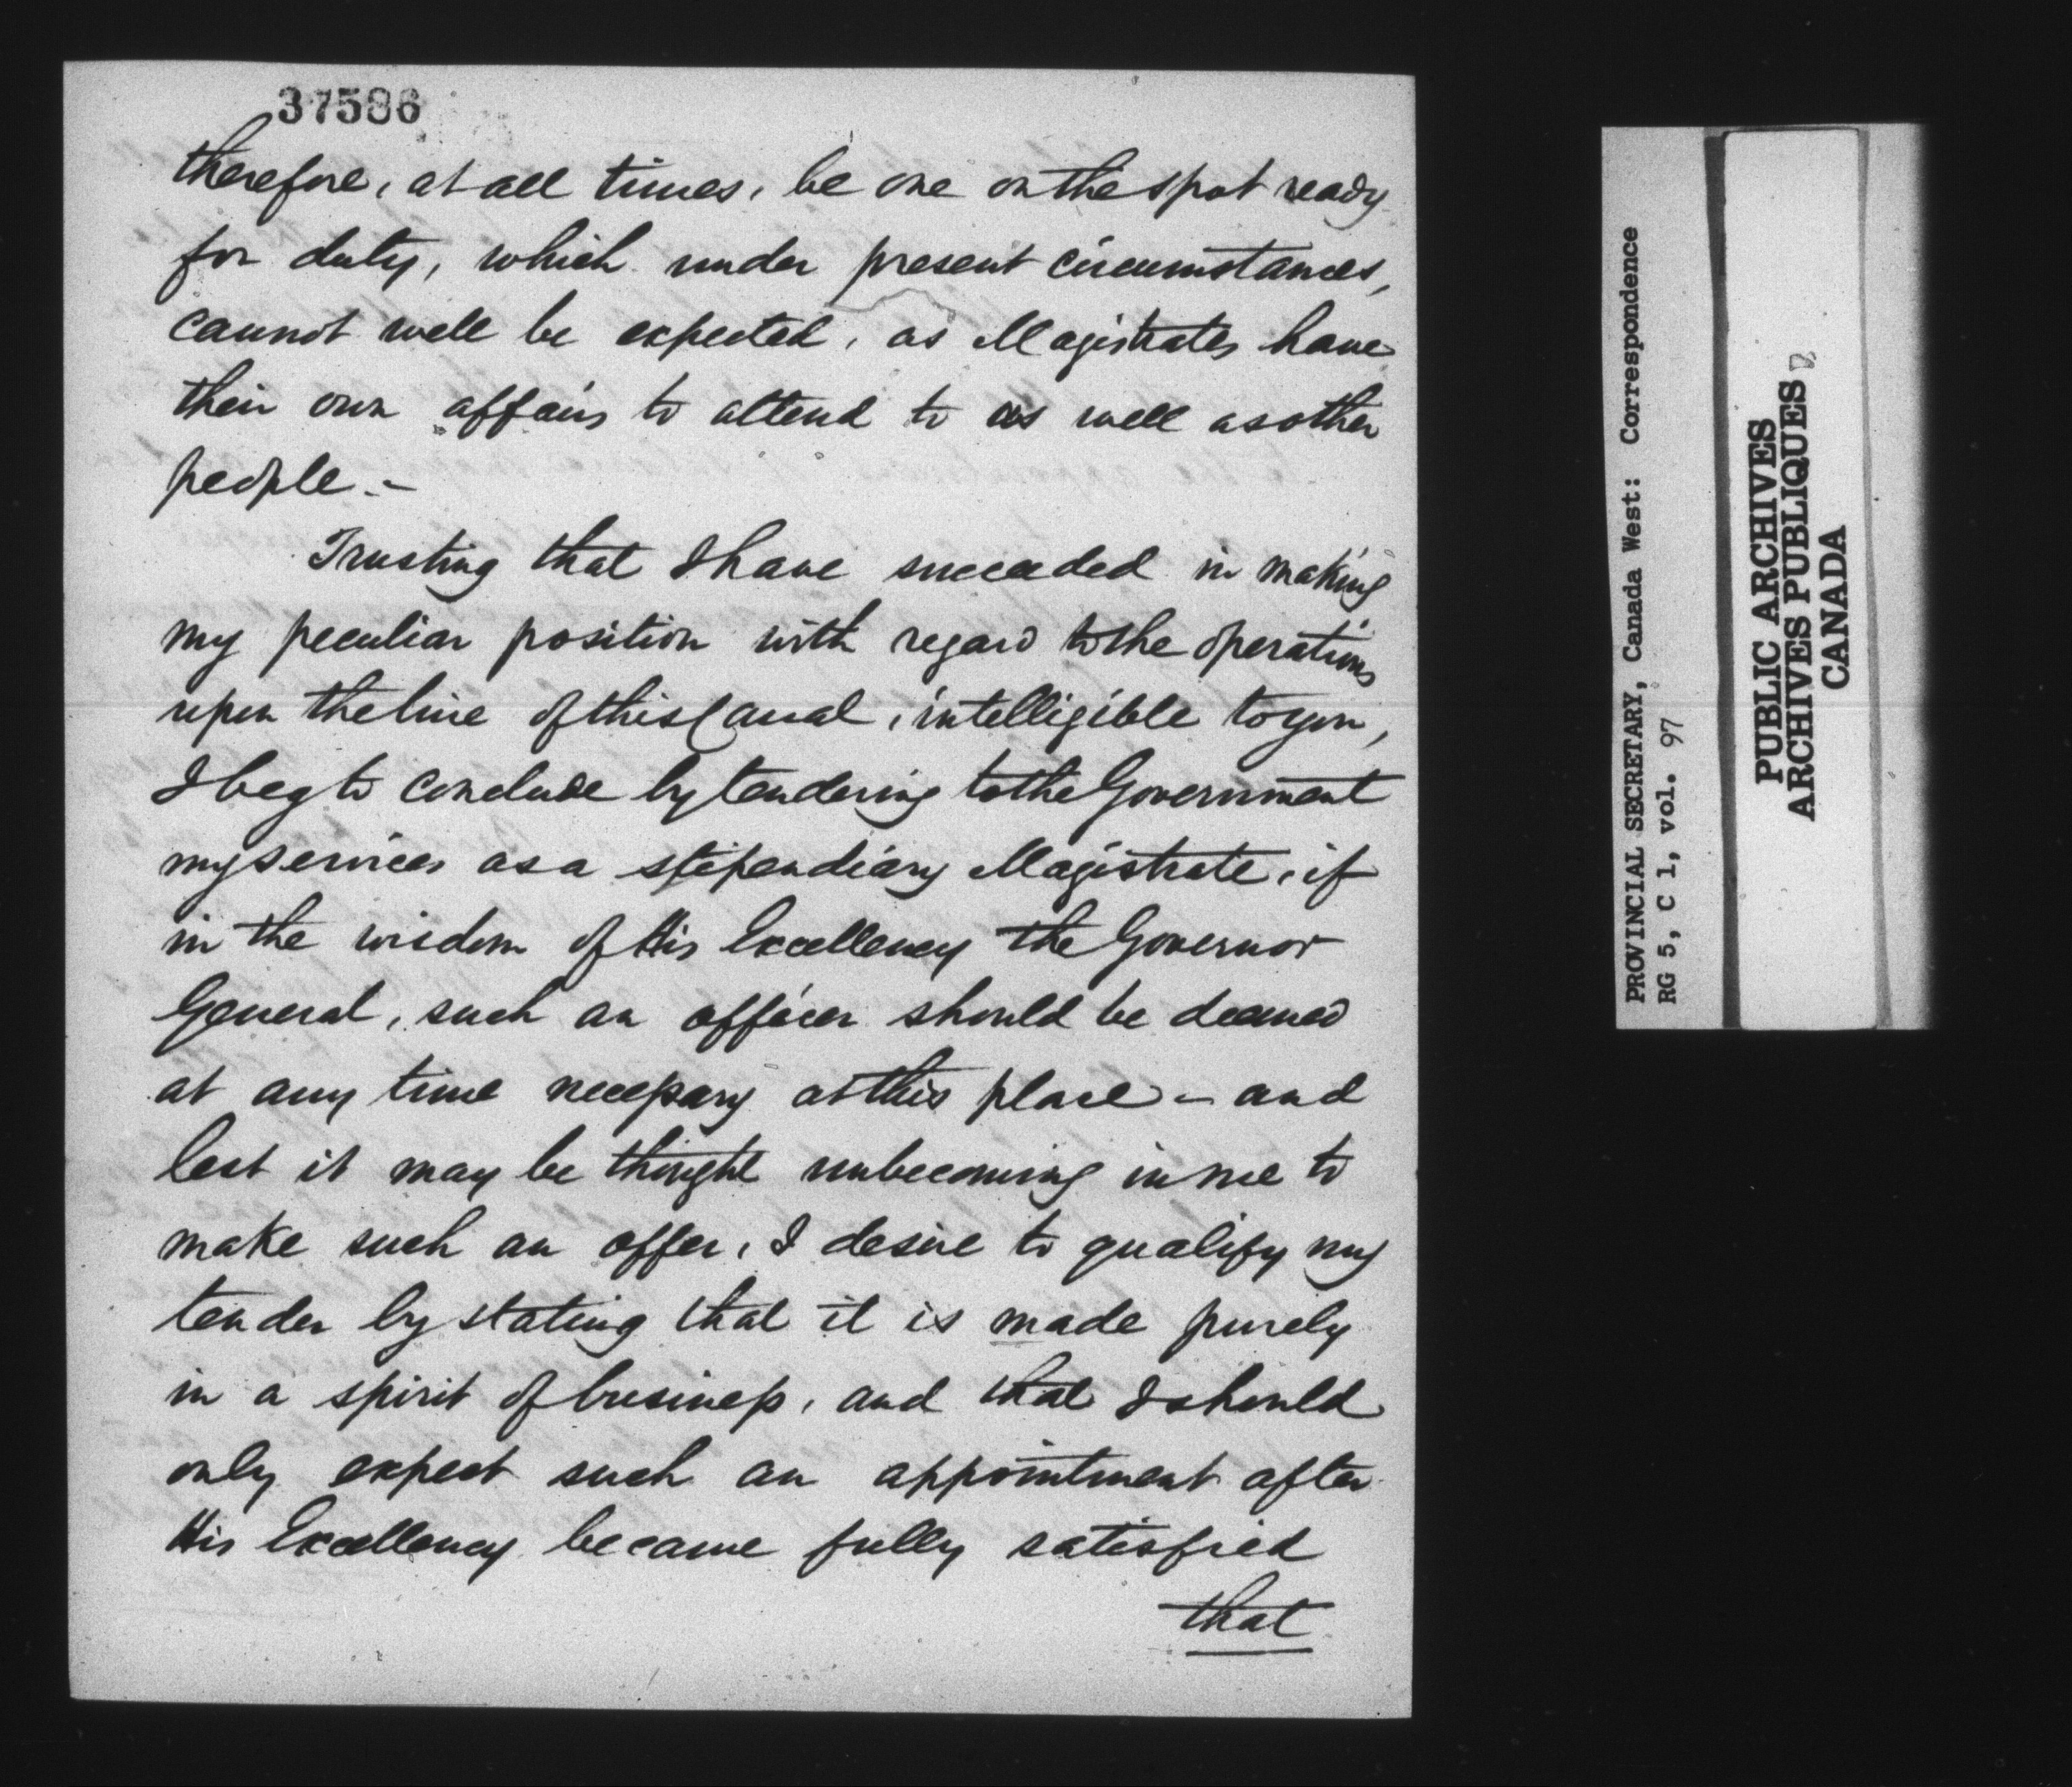 37586
therefore, at all times, be one on the spot ready
for duty, which under present circumstances,
cannot well be expected, as Magistrates have
their own affairs to attend to as well as other
people.-
Trusting that I have succeeded in making
my peculiar position with regard to the operations
upon the line of this Canal, intelligible to you,
I beg to conclude by tendering to the Government
my services as a stipendiary Magistrate, if
in the wisdom of His Excellency the Governor
General, such an officer should be deemed
at any time necessary at this place - and
lest it may be thought unbecoming in me to
make such an offer, I desire to qualify my
tender by stating that it is made purely
in a spirit of business, and that I should
only expect such an appointment after
His Excellency became fully satisfied
that
PROVINCIAL SECRETARY, Canada West: Correspondence
RG 5, C 1, vol. 97
PUBLIC ARCHIVES
ARCHIVES PUBLIQUES
CANADA